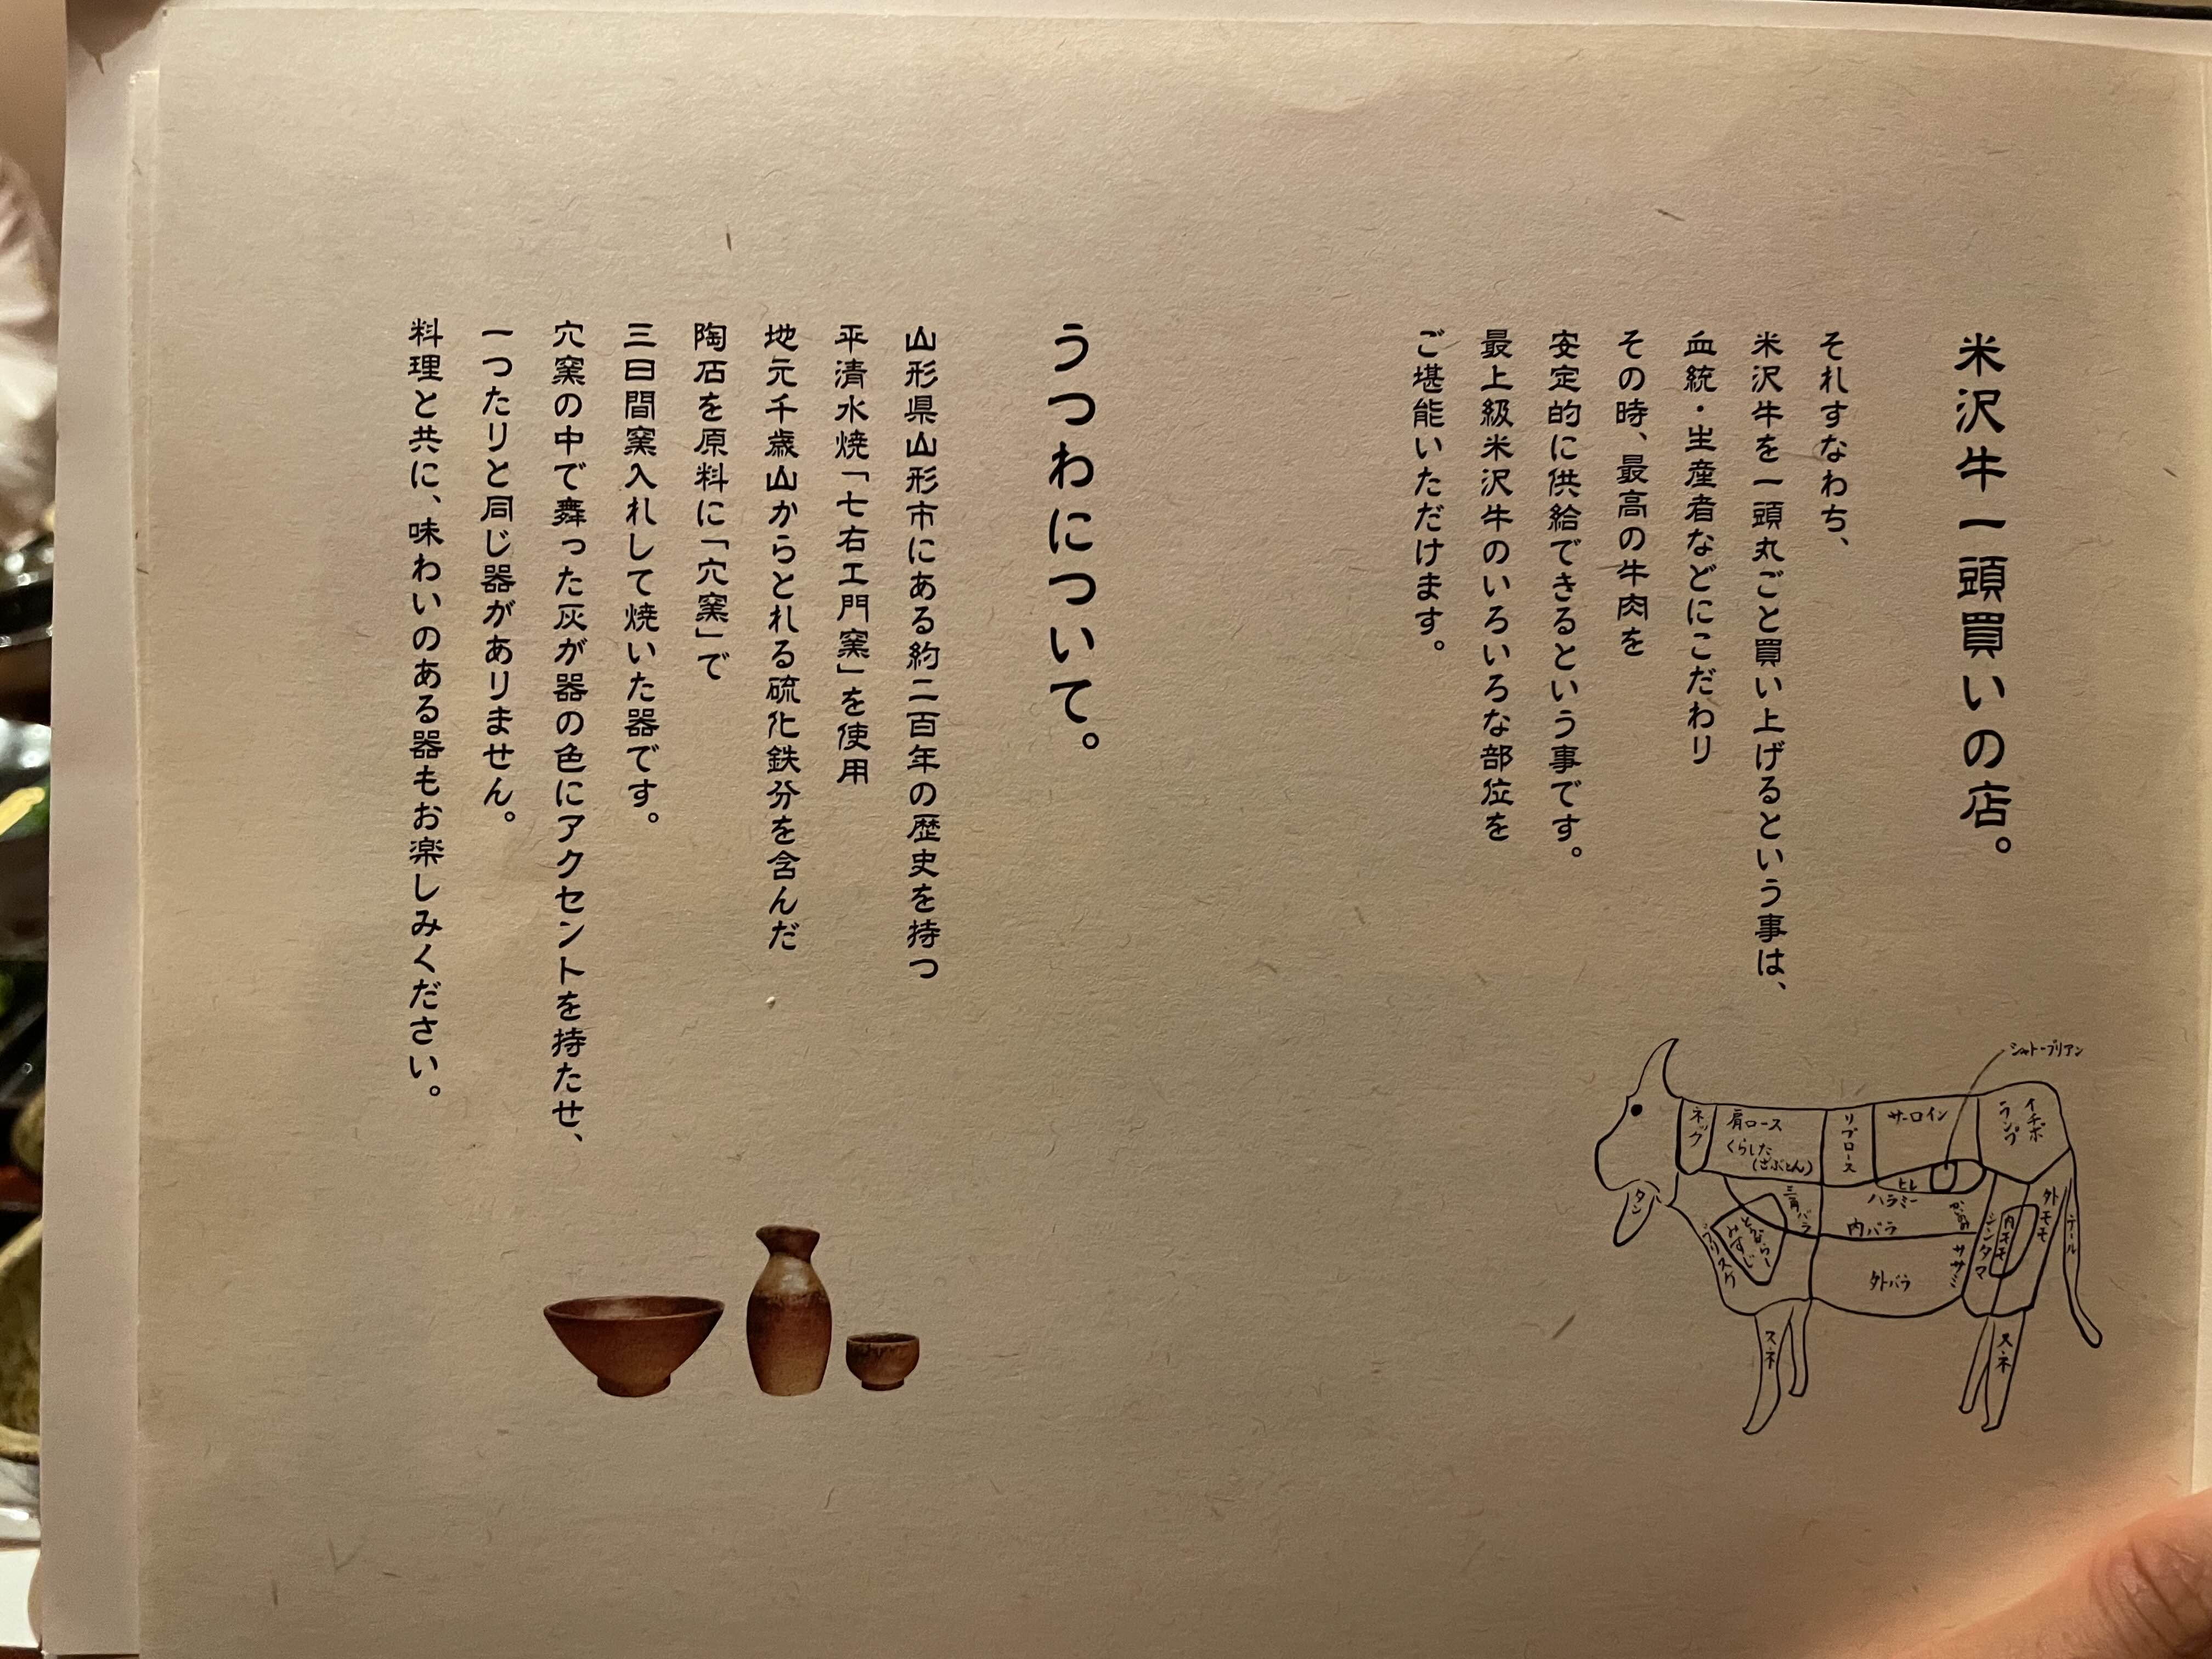 米沢牛一頭買いの店。
それすなわち、
米沢牛を一頭丸ごと買い上げるという事は、
血統・生産者などにこだわり
その時、最高の牛肉を
安定的に供給できるという事です。
最上級米沢牛のいろいろな部位を
ご堪能いただけます。
シャトーブリアン
イチボ
ランプ
サーロイン
リブロース
肩ロース
くらした
(ざぶとん)
ネック
タン
ヒレ
ハラミー
三角バラ
内バラ
外バラ
ササミ
シンタマ
内モモ
外モモ
テール
みすじ
ブリスケ
スネ
スネ
うつわについて。
山形県山形市にある約二百年の歴史を持つ
平清水焼「七右エ門窯」を使用
地元千歳山からとれる硫化鉄分を含んだ
陶石を原料に「穴窯」で
三日間窯入れして焼いた器です。
穴窯の中で舞った灰が器の色にアクセントを持たせ、
一つたりと同じ器がありません。
料理と共に、味わいのある器もお楽しみください。